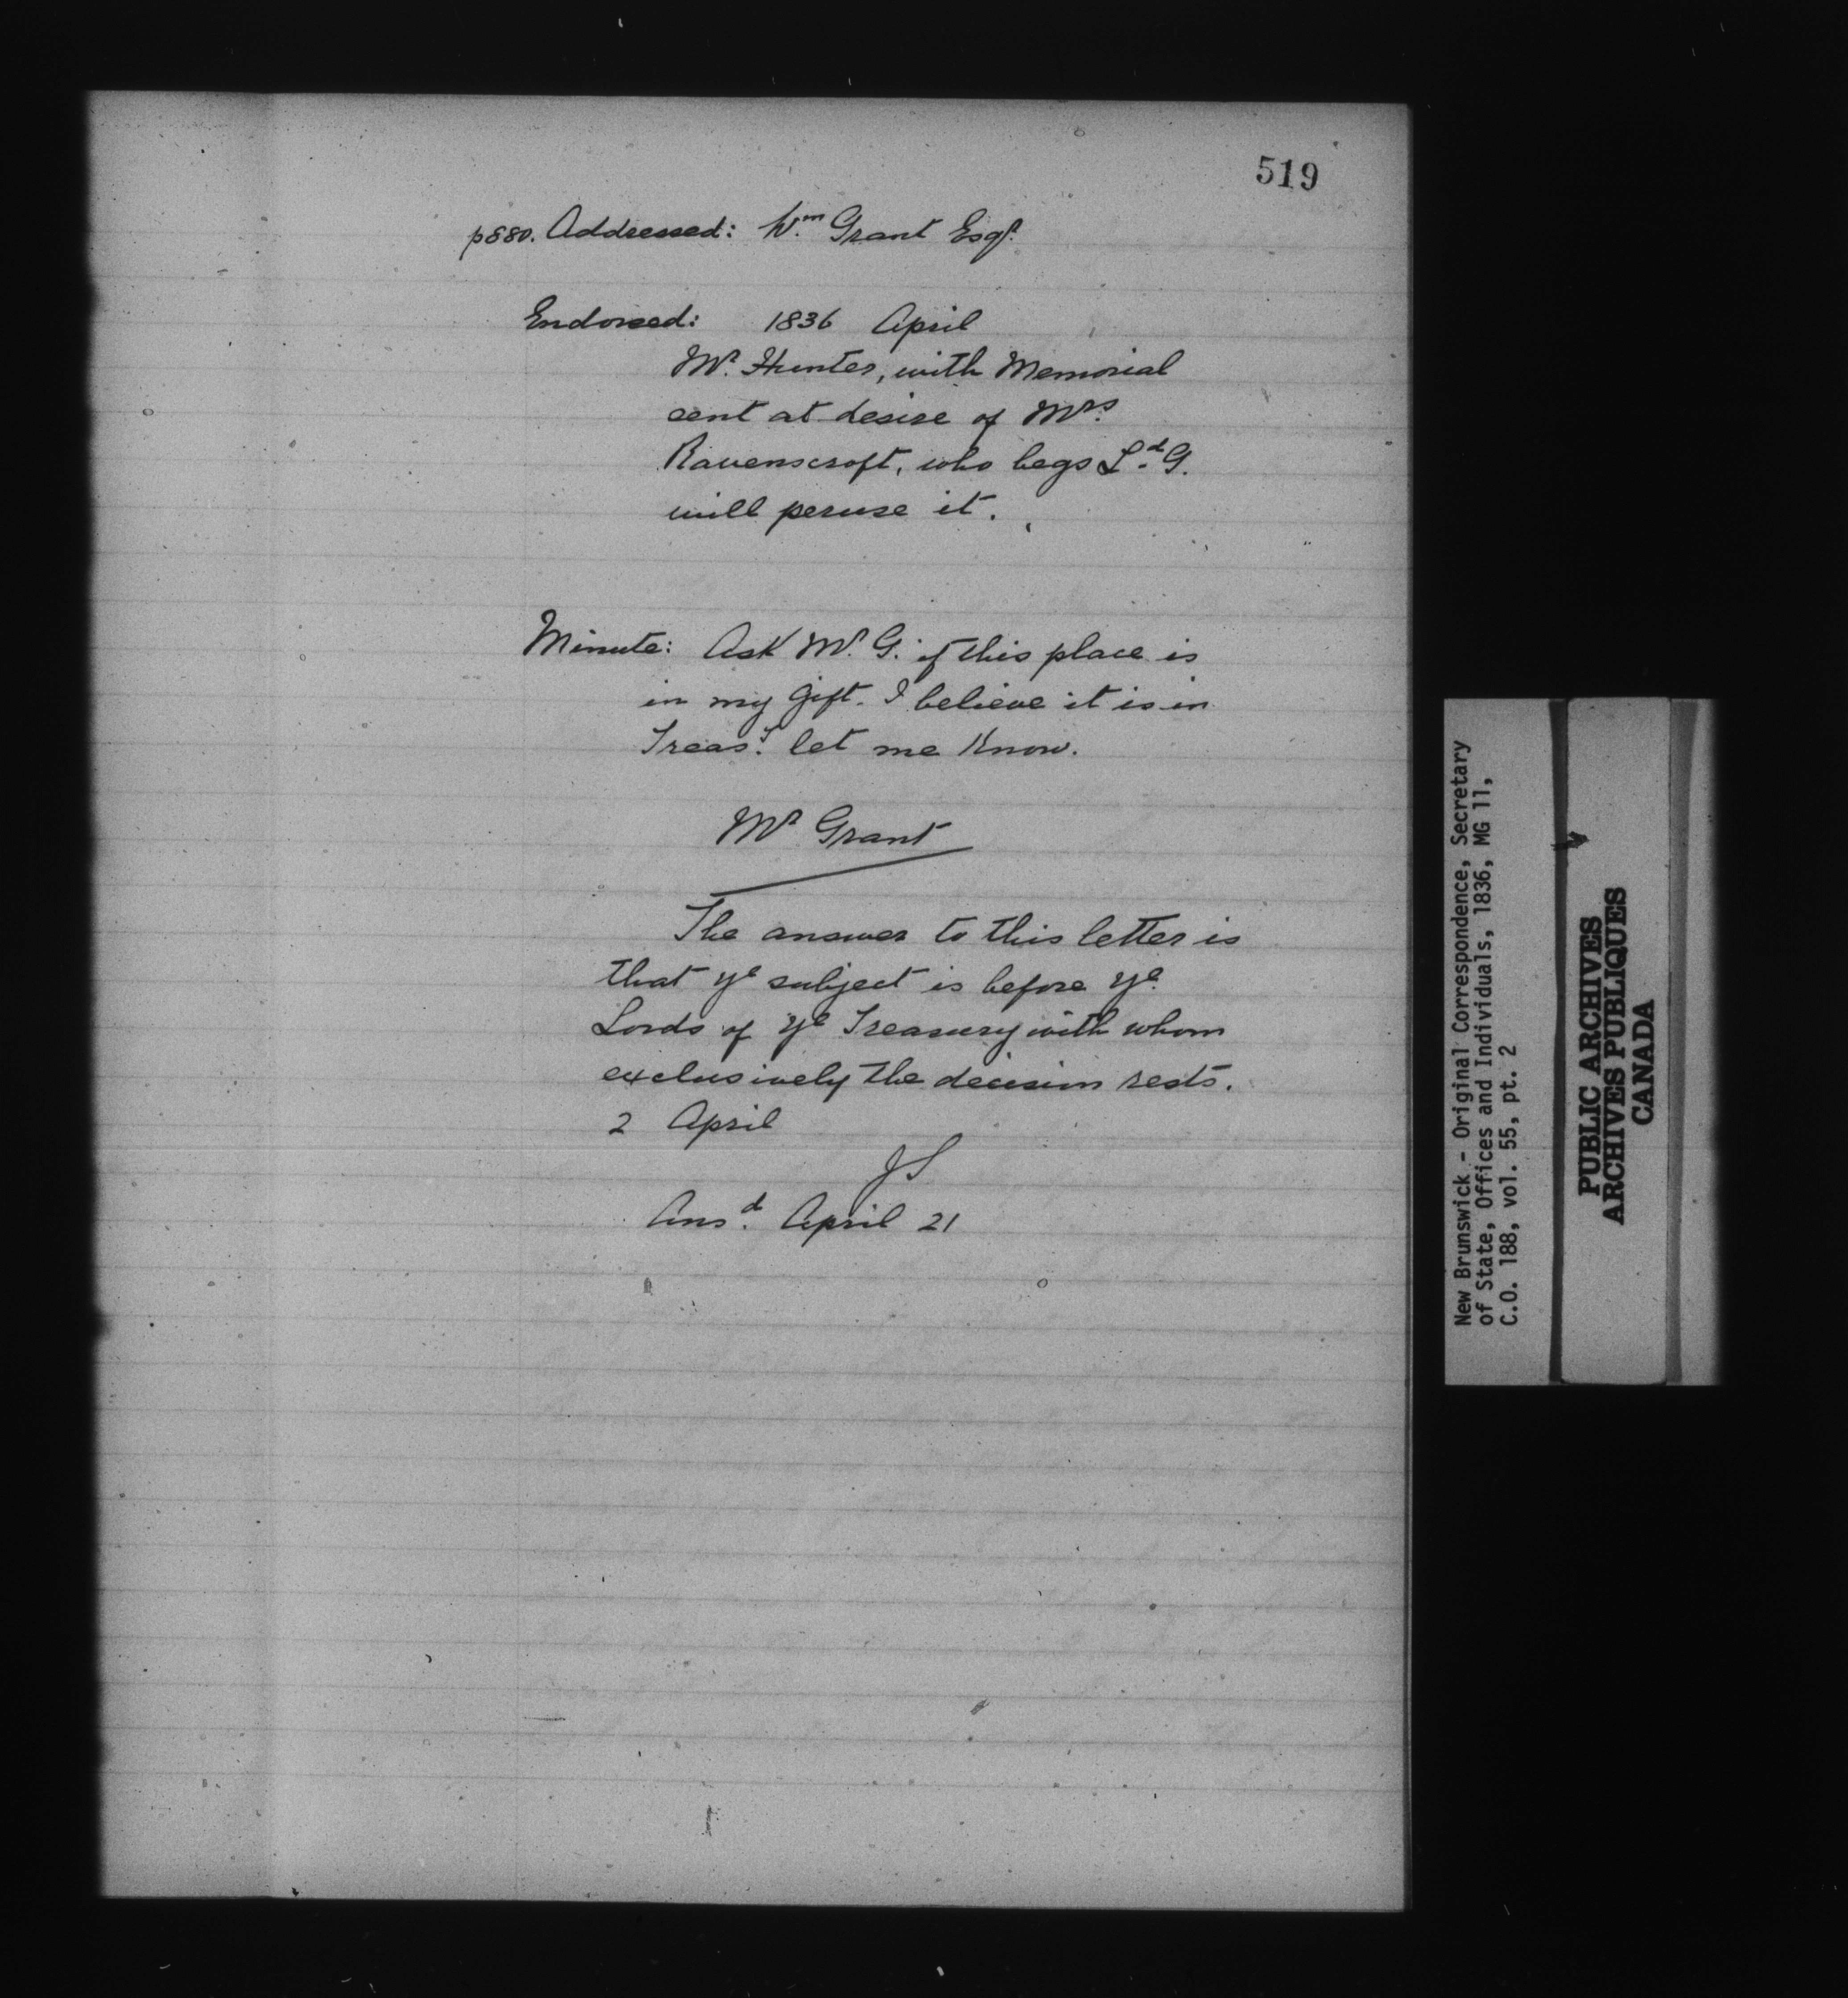 519
p880. Addressed: Wm. Grant Esqr.
Endorsed: 1836 April
Mr. Hunter, with Memorial
sent at desire of Mrs.
Ravenscroft, who begs Ld. G.
will peruse it.
Minute: Ask Mr. G. if this place is
in my gift. I believe it is in
Treasy. let me know.
Mr Grant
The answer to this letter is
that ye subject is before ye.
Lords of ye Treasury with whom
exclusively the decision rests.
2 April
JS
Ansd. April 21
New Brunswick - Original Correspondence, Secretary
of State, Offices and Individuals, 1836, MG 11,
C.O. 188, vol. 55, pt. 2
PUBLIC ARCHIVES
ARCHIVES PUBLIQUES
CANADA